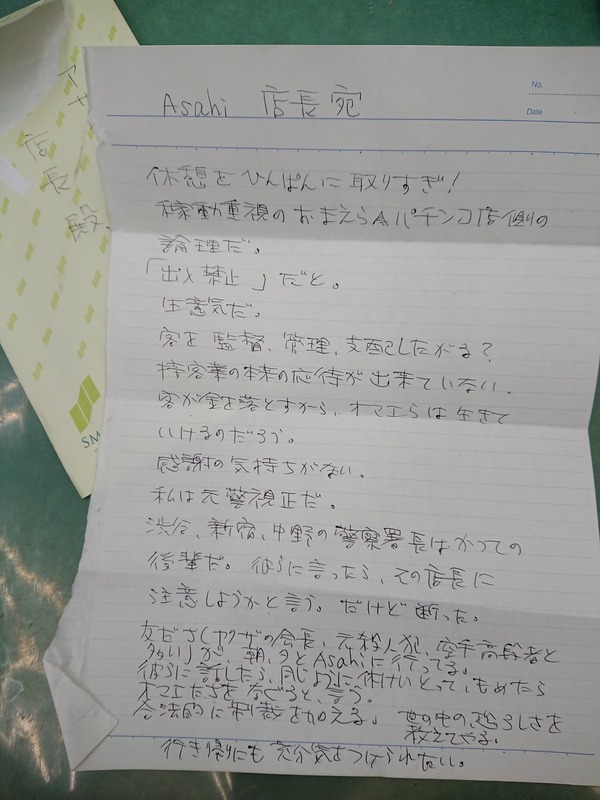 No.
Date
Asahi 店長宛
休憩をひんぱんに取りすぎ!
稼動重視のおまえらパチンコ店側の
論理だ。
「出入禁止」だと。
生意気だ。
客を監督、管理、支配したがる?
接客業の本来の応待が出来ていない。
客が金を落とすから、オマエらは生きて
いけるのだろう。
感謝の気持ちがない。
私は元警視正だ。
渋谷、新宿、中野の警察署長はかつての
後輩だ。彼らに言ったら、その店長に
注意しようかと言う。だけど断った。
友だちしヤクザの会長、元殺人犯、空手高齢者と
多い」が、朝、夕とAsahiに行ってる。
彼らに話したら、同じように休けいとって、もめたら
オマエたちを と、言う。
合法的に制裁を加える。世の中の恐ろしさを
教えてやる。
行き帰りにも充分気をつけられたい。
アサ
店長
殿